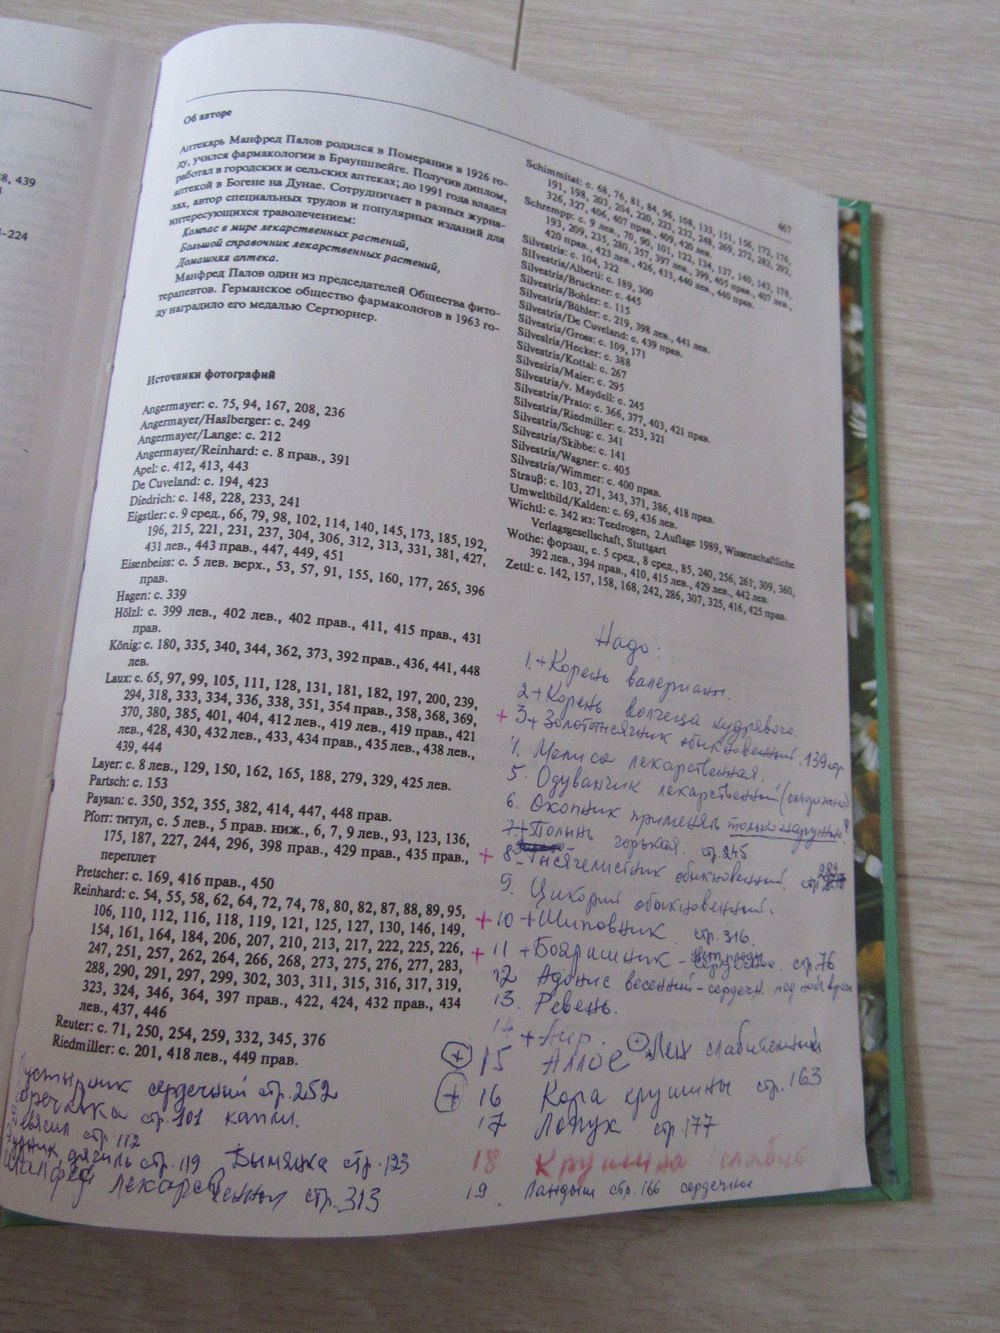 8, 439
-224
667
Об авторе
Аптекарь Манфред Палов родился в Померании в 1926 го-
ду, учился фармакологии в Брауншвейге. Получив диплом,
работал в городских и сельских аптеках; до 1991 года владел
аптекой в Богене на Дунае. Сотрудничает в разных журна-
лах, автор специальных трудов и популярных изданий для
интересующихся траволечением:
Компас в мире лекарственных растений,
Большой справочник лекарственных растений,
Домашняя аптека.
Манфред Палов один из председателей Общества фито-
терапевтов. Германское общество фармакологов в 1963 го-
ду наградило его медалью Сертюрнер.
Источники фотографий
Angermayer: с. 75, 94, 167, 208, 236
Angermayer/Haslberger: с. 249
Angermayer/Lange: с. 212
Angermayer/Reinhard: с. 8 прав., 391
Apel: с. 412, 413, 443
De Cuveland: с. 194, 423
Diedrich: с. 148, 228, 233, 241
Eigstler: с. 9 сред., 66, 79, 98, 102, 114, 140, 145, 173, 185, 192,
196, 215, 221, 231, 237, 304, 306, 312, 313, 331, 381, 427,
431 лев., 443 прав., 447, 449, 451
Eisenbeiss: с. 5 лев. верх., 53, 57, 91, 155, 160, 177, 265, 396
прав.
Hagen: с. 339
Hölzl: с. 399 лев., 402 лев., 402 прав., 411, 415 прав., 431
прав.
König: с. 180, 335, 340, 344, 362, 373, 392 прав., 436, 441, 448
лев.
Laux: с. 65, 97, 99, 105, 111, 128, 131, 181, 182, 197, 200, 239,
294, 318, 333, 334, 336, 338, 351, 354 прав., 358, 368, 369,
370, 380, 385, 401, 404, 412 лев., 419 лев., 419 прав., 421
лев., 428, 430, 432 лев., 433, 434 прав., 435 лев., 438 лев.,
439, 444
Layer: с. 8 лев., 129, 150, 162, 165, 188, 279, 329, 425 лев.
Partsch: с. 153
Paysan: с. 350, 352, 355, 382, 414, 447, 448 прав.
Pforr: титул, с. 5 лев., 5 прав. ниж., 6, 7, 9 лев., 93, 123, 136,
175, 187, 227, 244, 296, 398 прав., 429 прав., 435 прав.,
переплет
Pretscher: с. 169, 416 прав., 450
Reinhard: с. 54, 55, 58, 62, 64, 72, 74, 78, 80, 82, 87, 88, 89, 95,
106, 110, 112, 116, 118, 119, 121, 125, 127, 130, 146, 149,
154, 161, 164, 184, 206, 207, 210, 213, 217, 222, 225, 226,
247, 251, 257, 262, 264, 266, 268, 273, 275, 276, 277, 283,
288, 290, 291, 297, 299, 302, 303, 311, 315, 316, 317, 319,
323, 324, 346, 364, 397 прав., 422, 424, 432 прав., 434
лев., 437, 446
Reuter: с. 71, 250, 254, 259, 332, 345, 376
Riedmiller: с. 201, 418 лев., 449 прав.
Пустырник сердечный стр. 252
Гречишка стр. 101 капли.
Девясил стр 112
Дудник дягиль стр. 119 Дымянка стр. 123
Шалфей лекарственный стр. 313
Schimmitat: с. 68, 76, 81, 84, 96, 108, 133, 151, 156, 172, 176,
191, 198, 203, 204, 220, 223, 232, 248, 269, 272, 282, 292,
326, 327, 406, 407 прав., 409, 420 лев.
Schrempp: с. 9 лев., 70, 90, 101, 122, 134, 137, 140, 143, 178,
193, 209, 235, 280, 357, 397 лев., 399, 405 прав., 407 лев.,
420 прав., 423 лев., 426, 433, 440 лев., 440 прав.
Silvestris: с. 104, 322
Silvestris/Alberti: с. 189, 300
Silvestris/Bruckner: с. 445
Silvestris/Bohler: с. 115
Silvestris/Bühler: с. 219, 398 лев., 441 лев.
Silvestris/De Cuveland: с. 439 прав.
Silvestris/Gross: с. 109, 171
Silvestris/Hecker: с. 388
Silvestris/Kottal: с. 267
Silvestris/Maier: с. 295
Silvestris/v. Maydell: с. 245
Silvestris/Prato: с. 366, 377, 403, 421 прав.
Silvestris/Riedmiller: с. 253, 321
Silvestris/Schug: с. 341
Silvestris/Skibbe: с. 141
Silvestris/Wagner: с. 405
Silvestris/Wimmer: с. 400 прав.
Strauβ: с. 103, 271, 343, 371, 386, 418 прав.
Umweltbild/Kalden: с. 69, 436 лев.
Wichtl: с. 342 из: Teedrogen, 2.Auflage 1989, Wissenschaftliche
Verlagsgesellschaft, Stuttgart
Wothe: форзац, с. 5 сред., 8 сред., 85, 240, 256, 261, 309, 360,
392 лев., 394 прав., 410, 415 лев., 429 лев., 442 лев.
Zettl: с. 142, 157, 158, 168, 242, 286, 307, 325, 416, 425 прав.
Надо:
1. + Корень валерианы.
2 + Корень волчеца кудрявого.
+ 3 + Золототысячник обыкновенный. 139 стр
4. Мелиса лекарственная.
5. Одуванчик лекарственный
6. Окопник применять только наружно
7. + Полынь горькая. стр. 245
+ 8. Тысячелистник обыкновенный. стр. 289
9. Цикорий обыкновенный.
+ 10 + Шиповник стр. 316.
+ 11 + Боярышник - стр. 76
12 Адонис весенний - сердечн. под набл врача
13. Ревень.
14 + Аир.
+ 15 Аллое + слабительный
+ 16 Кора крушины стр. 163
17 Лопух стр. 177
18 Крушина слабит
19. Ландыш стр. 166 сердечное
www.ay.by